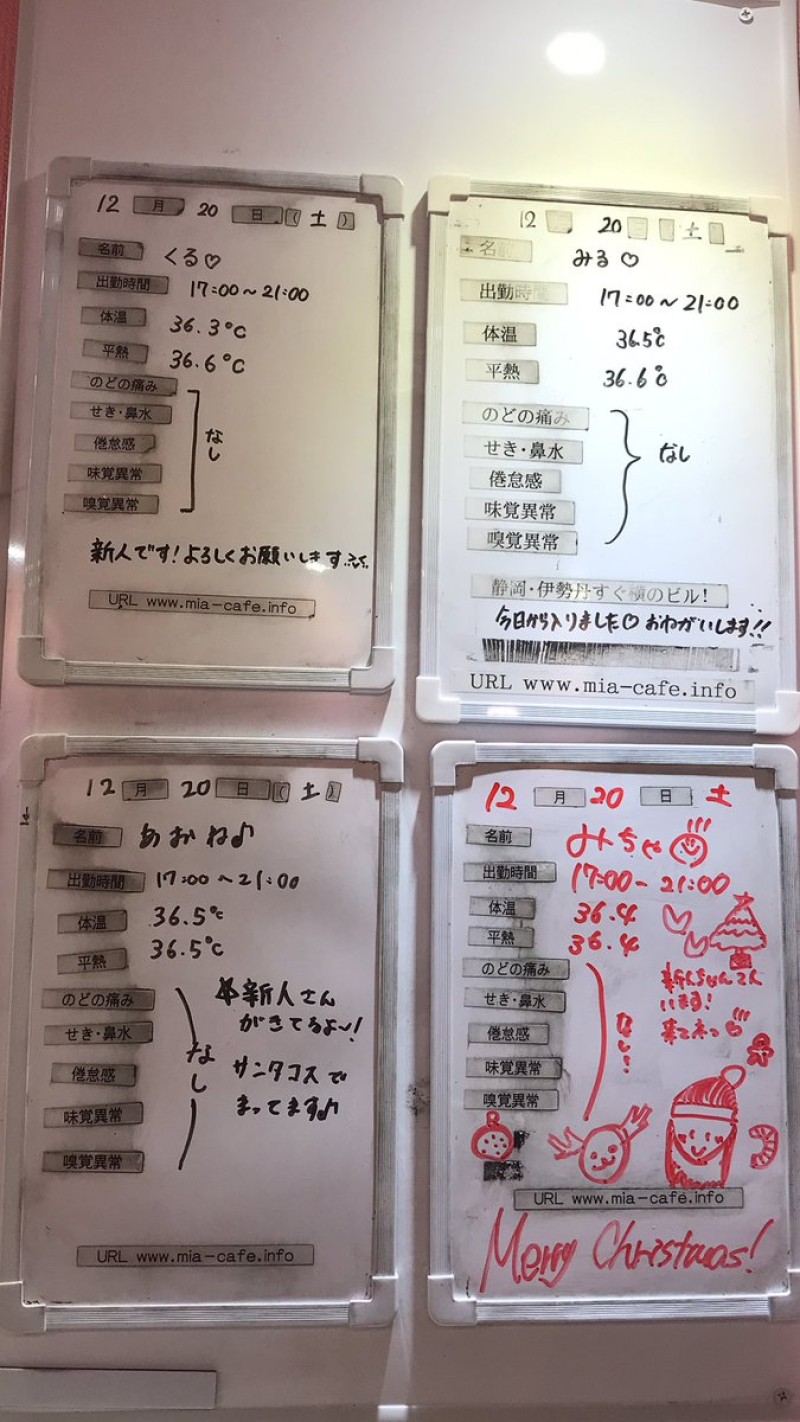 12 月 20 日 ( 土 )
名前 くる♡
出勤時間 17:00～21:00
体温 36.3℃
平熱 36.6℃
のどの痛み
せき・鼻水
倦怠感
味覚異常
嗅覚異常
なし
新人です!よろしくお願いします
URL www.mia-cafe.info
12 20 土
名前 みる♡
出勤時間 17:00～21:00
体温 36.5℃
平熱 36.6℃
のどの痛み
せき・鼻水
倦怠感
味覚異常
嗅覚異常
なし
静岡・伊勢丹すぐ横のビル!
今日から入りました♡ おねがいします!!
URL www.mia-cafe.info
12 月 20 日 ( 土 )
名前 あおね♪
出勤時間 17:00～21:00
体温 36.5℃
平熱 36.5℃
のどの痛み
せき・鼻水
倦怠感
味覚異常
嗅覚異常
なし
新人さん
がきてるよ～!
サンタコスで
まってます♪
URL www.mia-cafe.info
12 月 20 日 土
名前 みちゃ
出勤時間 17:00-21:00
体温 36.4
平熱 36.4
のどの痛み
せき・鼻水
倦怠感
味覚異常
嗅覚異常
なし!
います!
URL www.mia-cafe.info
Merry Christmas!